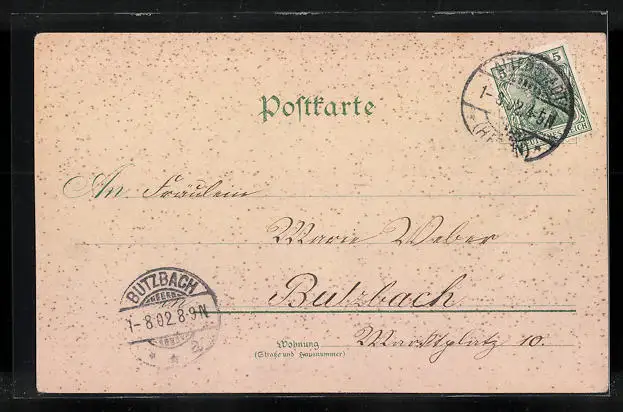 Postkarte
5
1-8 02 4-5N
(HESSEN)
An Fräulein
Marie Weber
Butzbach
BUTZBACH
1-8.02.8-9N
Wohnung
(Straße und Hausnummer)
Marktplatz 10.